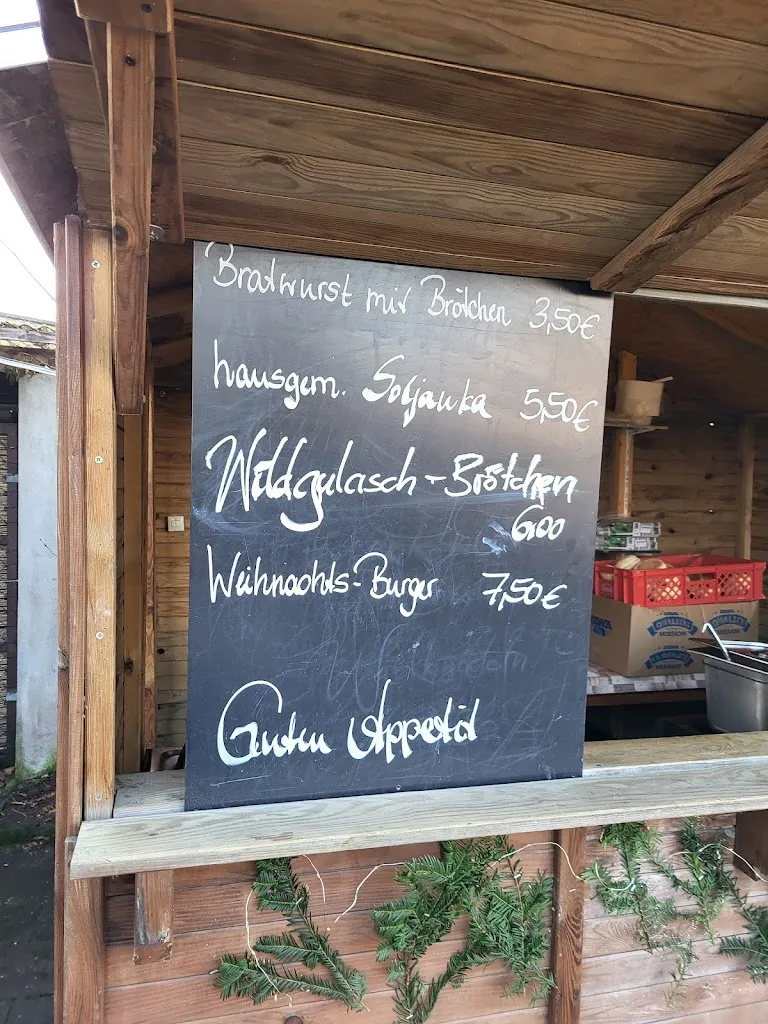 Bratwurst mit Brötchen 3,50€
hausgem. Soljanka 5,50€
Wildgulasch-Brötchen
6,00
Weihnachts-Burger 7,50€
Guten Appetit